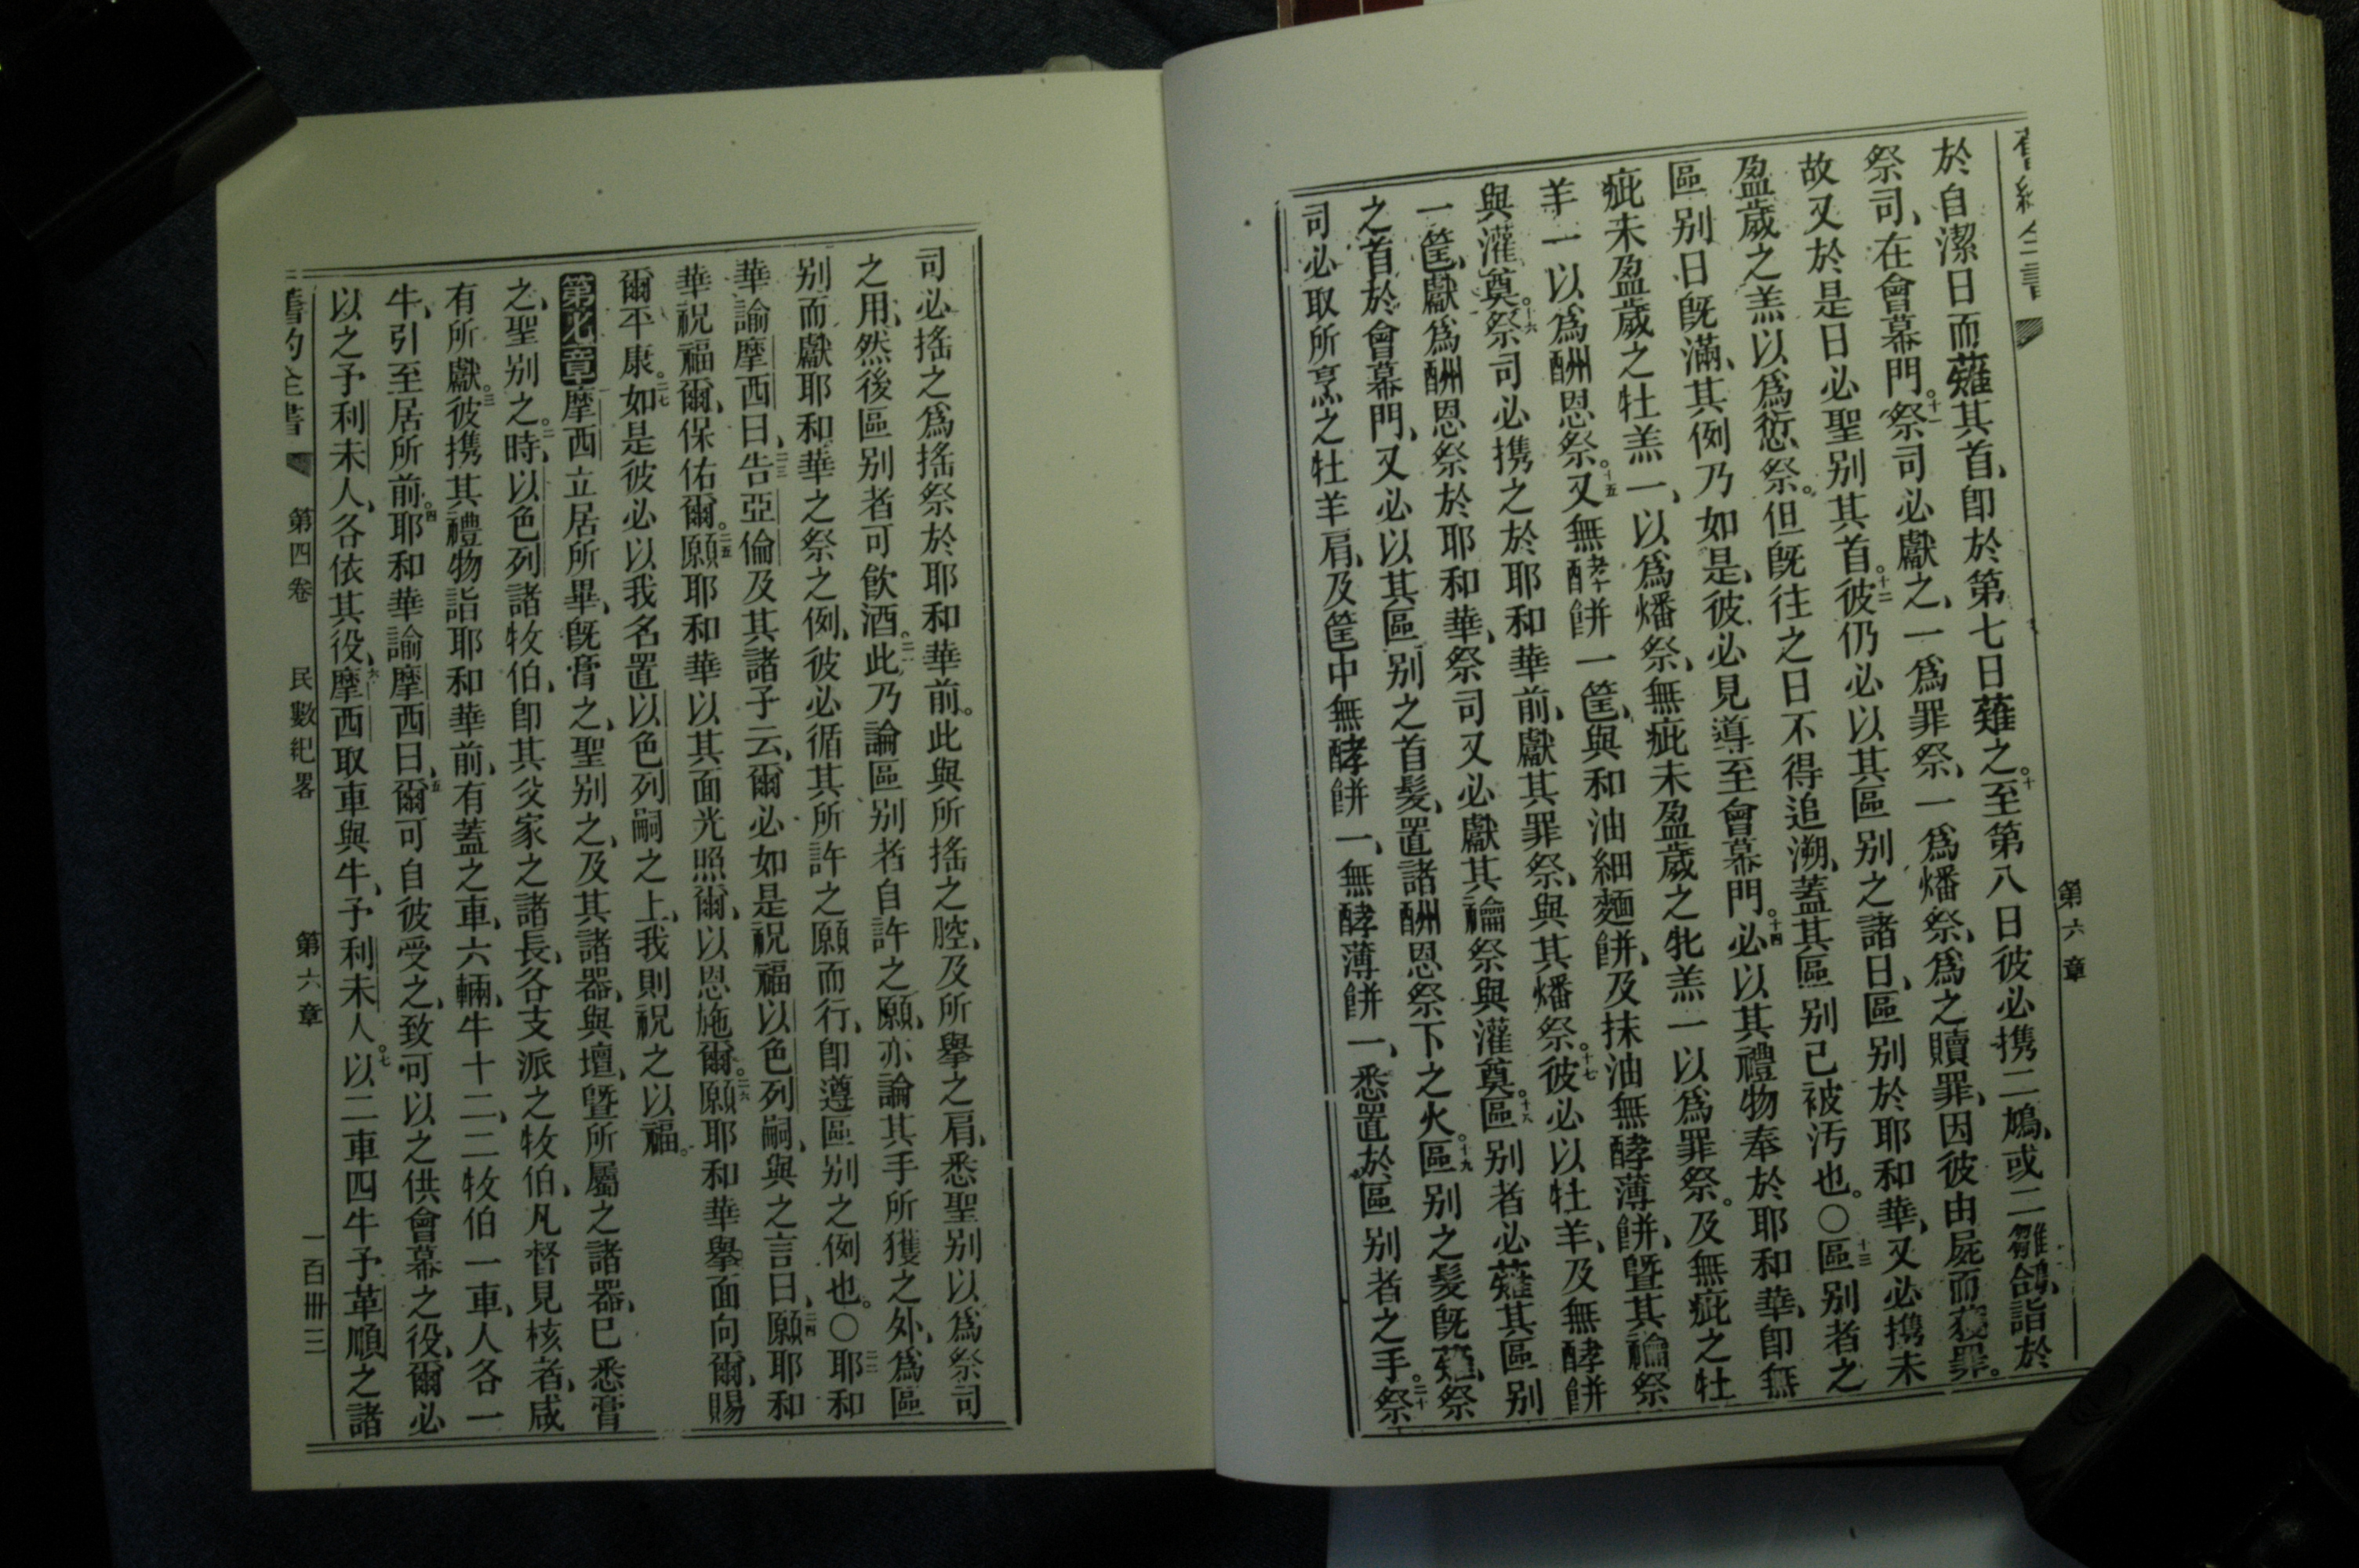 第六章
於自潔日而薙其首、卽於第七日薙之。十至第八日彼必携二鳩、或二雛鴿、詣於
祭司、在會幕門。十一祭司必獻之、一爲罪祭、一爲燔祭、爲之贖罪、因彼由屍而獲罪。
故又於是日必聖別其首。十二彼仍必以其區別之諸日、區別於耶和華、又必携未
盈歲之羔以爲愆祭。但旣往之日不得追溯、蓋其區別已被汚也。○十三區別者之
區別日旣滿、其例乃如是、彼必見導至會幕門。十四必以其禮物奉於耶和華、卽無
疵未盈歲之牡羔一、以爲燔祭、無疵未盈歲之牝羔一以爲罪祭。及無疵之牡
羊一以爲酬恩祭。十五又無酵餅一筐、與和油細麵餅、及抹油無酵薄餅、曁其禴祭
與灌奠。十六祭司必携之於耶和華前、獻其罪祭、與其燔祭。十七彼必以牡羊、及無酵餅
一筐、獻爲酬恩祭於耶和華、祭司又必獻其禴祭與灌奠。十六區別者必薙其區別
之首於會幕門、又必以其區別之首髮、置諸酬恩祭下之火。十九區別之髮旣薙、祭
司必取所烹之牡羊肩、及筐中無酵餅一、無酵薄餅一、悉置於區別者之手。二十祭
司必搖之爲搖祭於耶和華前。此與所搖之腔、及所擧之肩、悉聖別以爲祭司
之用、然後區別者可飮酒。二一此乃論區別者自許之願、亦論其手所獲之外、爲區
別而獻耶和華之祭之例、彼必循其所許之願而行、卽遵區別之例也。○二二耶和
華諭摩西曰、二三告亞倫及其諸子云、爾必如是祝福以色列嗣、與之言曰、二四願耶和
華祝福爾、保佑爾。二五願耶和華以其面光照爾、以恩施爾。二六願耶和華擧面向爾、賜
爾平康。二七如是彼必以我名置以色列嗣之上、我則祝之以福。
第七章摩西立居所畢、旣膏之、聖別之、及其諸器、與壇、曁所屬之諸器、已悉膏
之、聖別之。二時、以色列諸牧伯、卽其父家之諸長、各支派之牧伯、凡督見核者、咸
有所獻。三彼携其禮物詣耶和華前、有蓋之車、六輛、牛十二、二牧伯一車、人各一
牛、引至居所前。四耶和華諭摩西曰、五爾可自彼受之、致可以之供會幕之役、爾必
以之予利未人、各依其役、六摩西取車與牛、予利未人。七以二車四牛予革順之諸
舊約全書 第四卷 民數紀畧 第六章 一百卌三